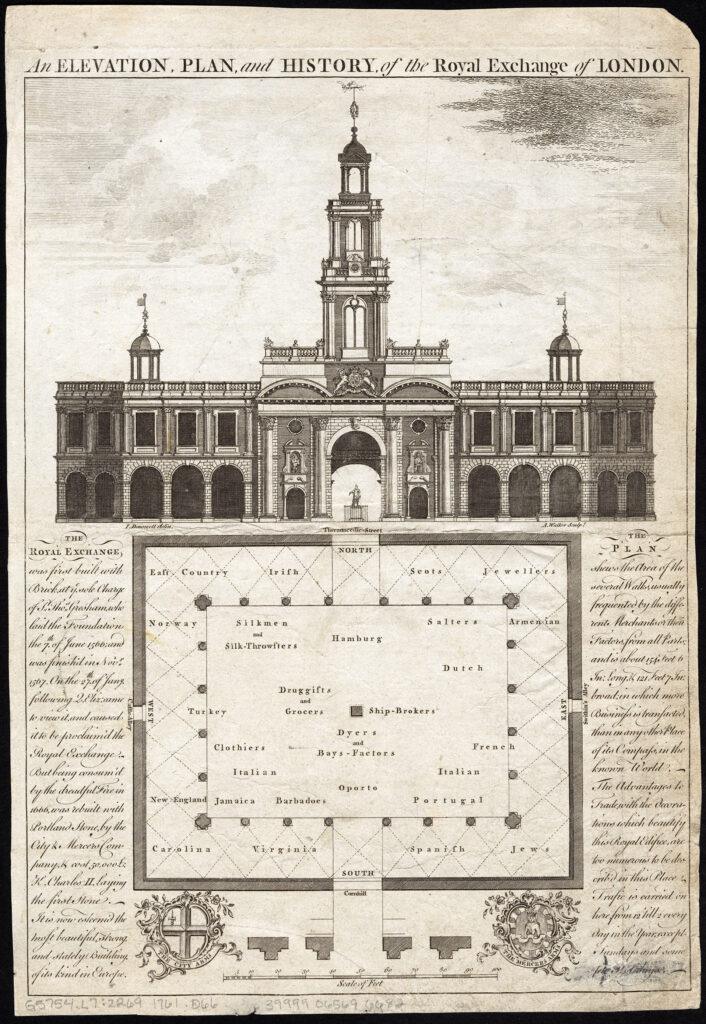 An ELEVATION, PLAN, and HISTORY, of the Royal Exchange of LONDON.
T. Donowell delin.
A. Walker Sculp.t
Threadneedle-Street
THE
ROYAL EXCHANGE,
was first built with
Brick, at ye. sole Charge
of Sr. Tho. Gresham, who
laid the Foundation
the 7th. of June 1566; and
was finish'd in Novr.
1567. On the 27th. of Jany.
following Q. Eliz: came
to view it, and caused
it to be proclaim'd the
Royal Exchange:
But being consum'd
by the dreadful Fire in
1666, was rebuilt with
Portland Stone, by the
City & Mercers Com-
pany, & cost 50,000£.
K. Charles II. laying
the first Stone.
It is now esteem'd the
most beautiful, strong
and stately Building
of its kind in Europe.
NORTH
East Country Irish Scots Jewellers
Norway Silkmen Salters Armenian
and
Silk-Throwsters
Hamburg
Dutch
Druggists
and
Turkey Grocers Ship-Brokers
Dyers
Clothiers and French
Bays-Factors
Italian Italian
Oporto
New-England Jamaica Barbadoes Portugal
Carolina Virginia Spanish Jews
SOUTH
WEST
EAST
Swithin's Alley
Cornhill
THE CITY ARMS
THE MERCERS
10 20 30 40 50 60 70 80 90 100
Scale of Feet
THE
PLAN
shews the Area of the
several Walks, usually
frequented by the diffe-
rent Merchants or their
Factors, from all Parts,
and is about 154 Feet 6
In: long, & 121 Feet 7 In:
broad; in which more
Business is transacted,
than in any other Place
of its Compass, in the
known World.
The Advantages to
Trade, with the Decora-
tions which beautify
this Royal Edifice, are
too numerous to be des-
crib'd in this Place.
Trafic is carried on
here from 12 till 2 every
day in the Year, except
Sundays and some
G5754.L7:2R69 1761 .D66
39999 06569 6682